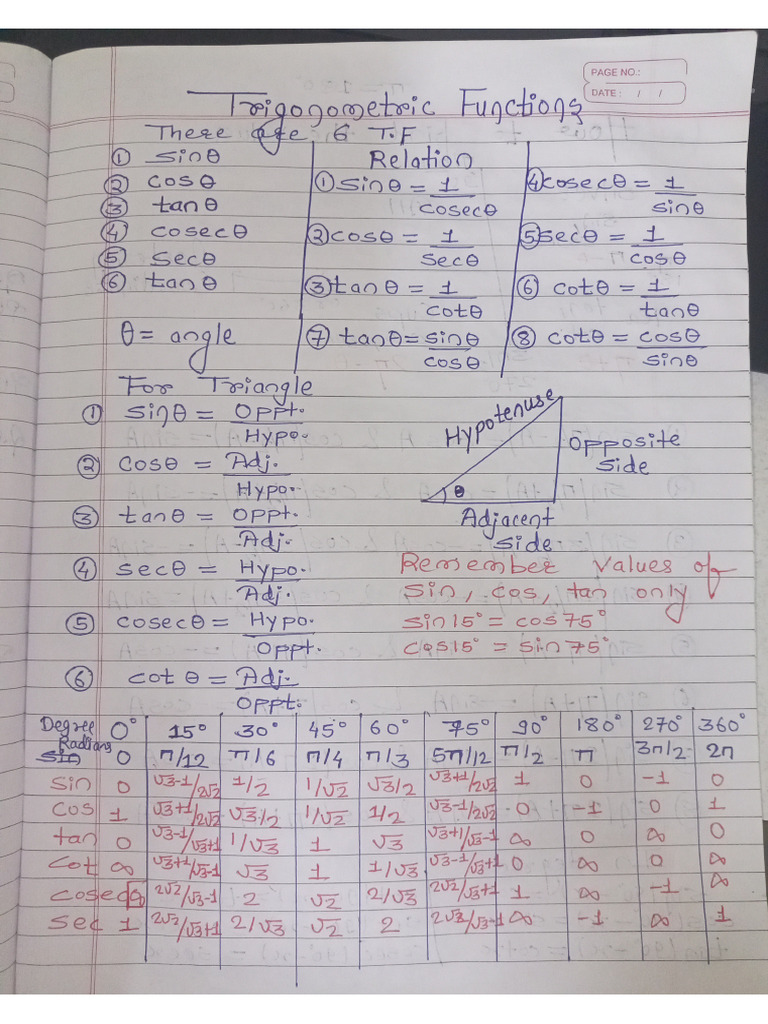 PAGE NO.:
DATE: / /
Trigonometric Functions
There are 6 T.F
① sinθ
② cosθ
③ tanθ
④ cosecθ
⑤ secθ
⑥ tanθ
θ = angle
Relation
① sinθ = 1/cosecθ
② cosθ = 1/secθ
③ tanθ = 1/cotθ
⑦ tanθ = sinθ/cosθ
④ cosecθ = 1/sinθ
⑤ secθ = 1/cosθ
⑥ cotθ = 1/tanθ
⑧ cotθ = cosθ/sinθ
For Triangle
① sinθ = Oppt./Hypo.
② cosθ = Adj./Hypo.
③ tanθ = Oppt./Adj.
④ secθ = Hypo./Adj.
⑤ cosecθ = Hypo./Oppt.
⑥ cotθ = Adj./Oppt.
Hypotenuse
Opposite
side
θ
Adjacent
side
Remember values of
sin, cos, tan only
sin15° = cos75°
cos15° = sin75°
Degree 0° 15° 30° 45° 60° 75° 90° 180° 270° 360°
Radians 0 π/12 π/6 π/4 π/3 5π/12 π/2 π 3π/2 2π
sin 0 √3-1/2√2 1/2 1/√2 √3/2 √3+1/2√2 1 0 -1 0
cos 1 √3+1/2√2 √3/2 1/√2 1/2 √3-1/2√2 0 -1 0 1
tan 0 √3-1/√3+1 1/√3 1 √3 √3+1/√3-1 ∞ 0 ∞ 0
cot ∞ √3+1/√3-1 √3 1 1/√3 √3-1/√3+1 0 ∞ 0 ∞
cosec ∞ 2√2/√3-1 2 √2 2/√3 2√2/√3+1 1 ∞ -1 ∞
sec 1 2√2/√3+1 2/√3 √2 2 2√2/√3-1 ∞ -1 ∞ 1